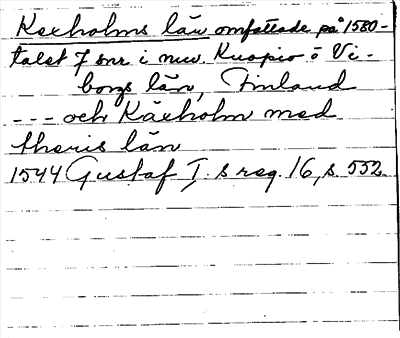 Kexholms län omfattade på 1580-
talet 7 snr i nuv. Kuopio o Vi-
borgs län, Finland
--- och Käxholm med
theris län
1544 Gustaf I. s reg. 16, s. 552